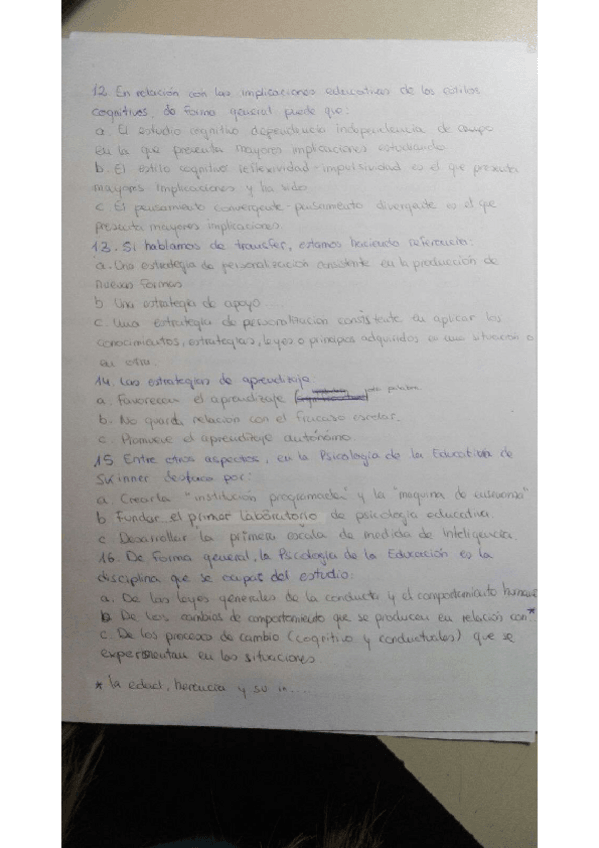 12. En relación con las implicaciones educativas de los estilos
cognitivos, de forma general puede que:
a. El estudio cognitivo dependencia independencia de campo
en la que presenta mayores implicaciones estudiando
b. El estilo cognitivo reflexividad-impulsividad es el que presenta
mayores implicaciones y ha sido
c. El pensamiento convergente-pensamiento divergente es el que
presenta mayores implicaciones.
13. Si hablamos de transfer, estamos haciendo referencia:
a. Una estrategia de personalización consistente en la producción de
nuevas formas
b. Una estrategia de apoyo.
c. Una estrategia de personalización consistente en aplicar los
conocimientos, estrategias, leyes o principios adquiridos en una situación a
en otra.
14. Las estrategias de aprendizaje
a. Favorecen el aprendizaje
b. No guarda relación con el fracaso escolar.
c. Promueve el aprendizaje autónomo
15 Entre otros aspectos, en la Psicología de la Educativa de
Skinner destaca por:
a. Crear la "institución programada" y la "maquina de enseñanza"
b. Fundar el primer laboratorio de psicología educativa.
c. Desarrollar la primera escala de medida de Inteligencia.
16. De forma general, la Psicología de la Educación es la
disciplina que se ocupa del estudio:
a. De las leyes generales de la conducta y el comportamiento humano
b. De los cambios de comportamiento que se producen en relación con *
c. De los procesos de cambio (cognitivo y conductuales) que se
experimentan en las situaciones
* la edad, herencia y su in....